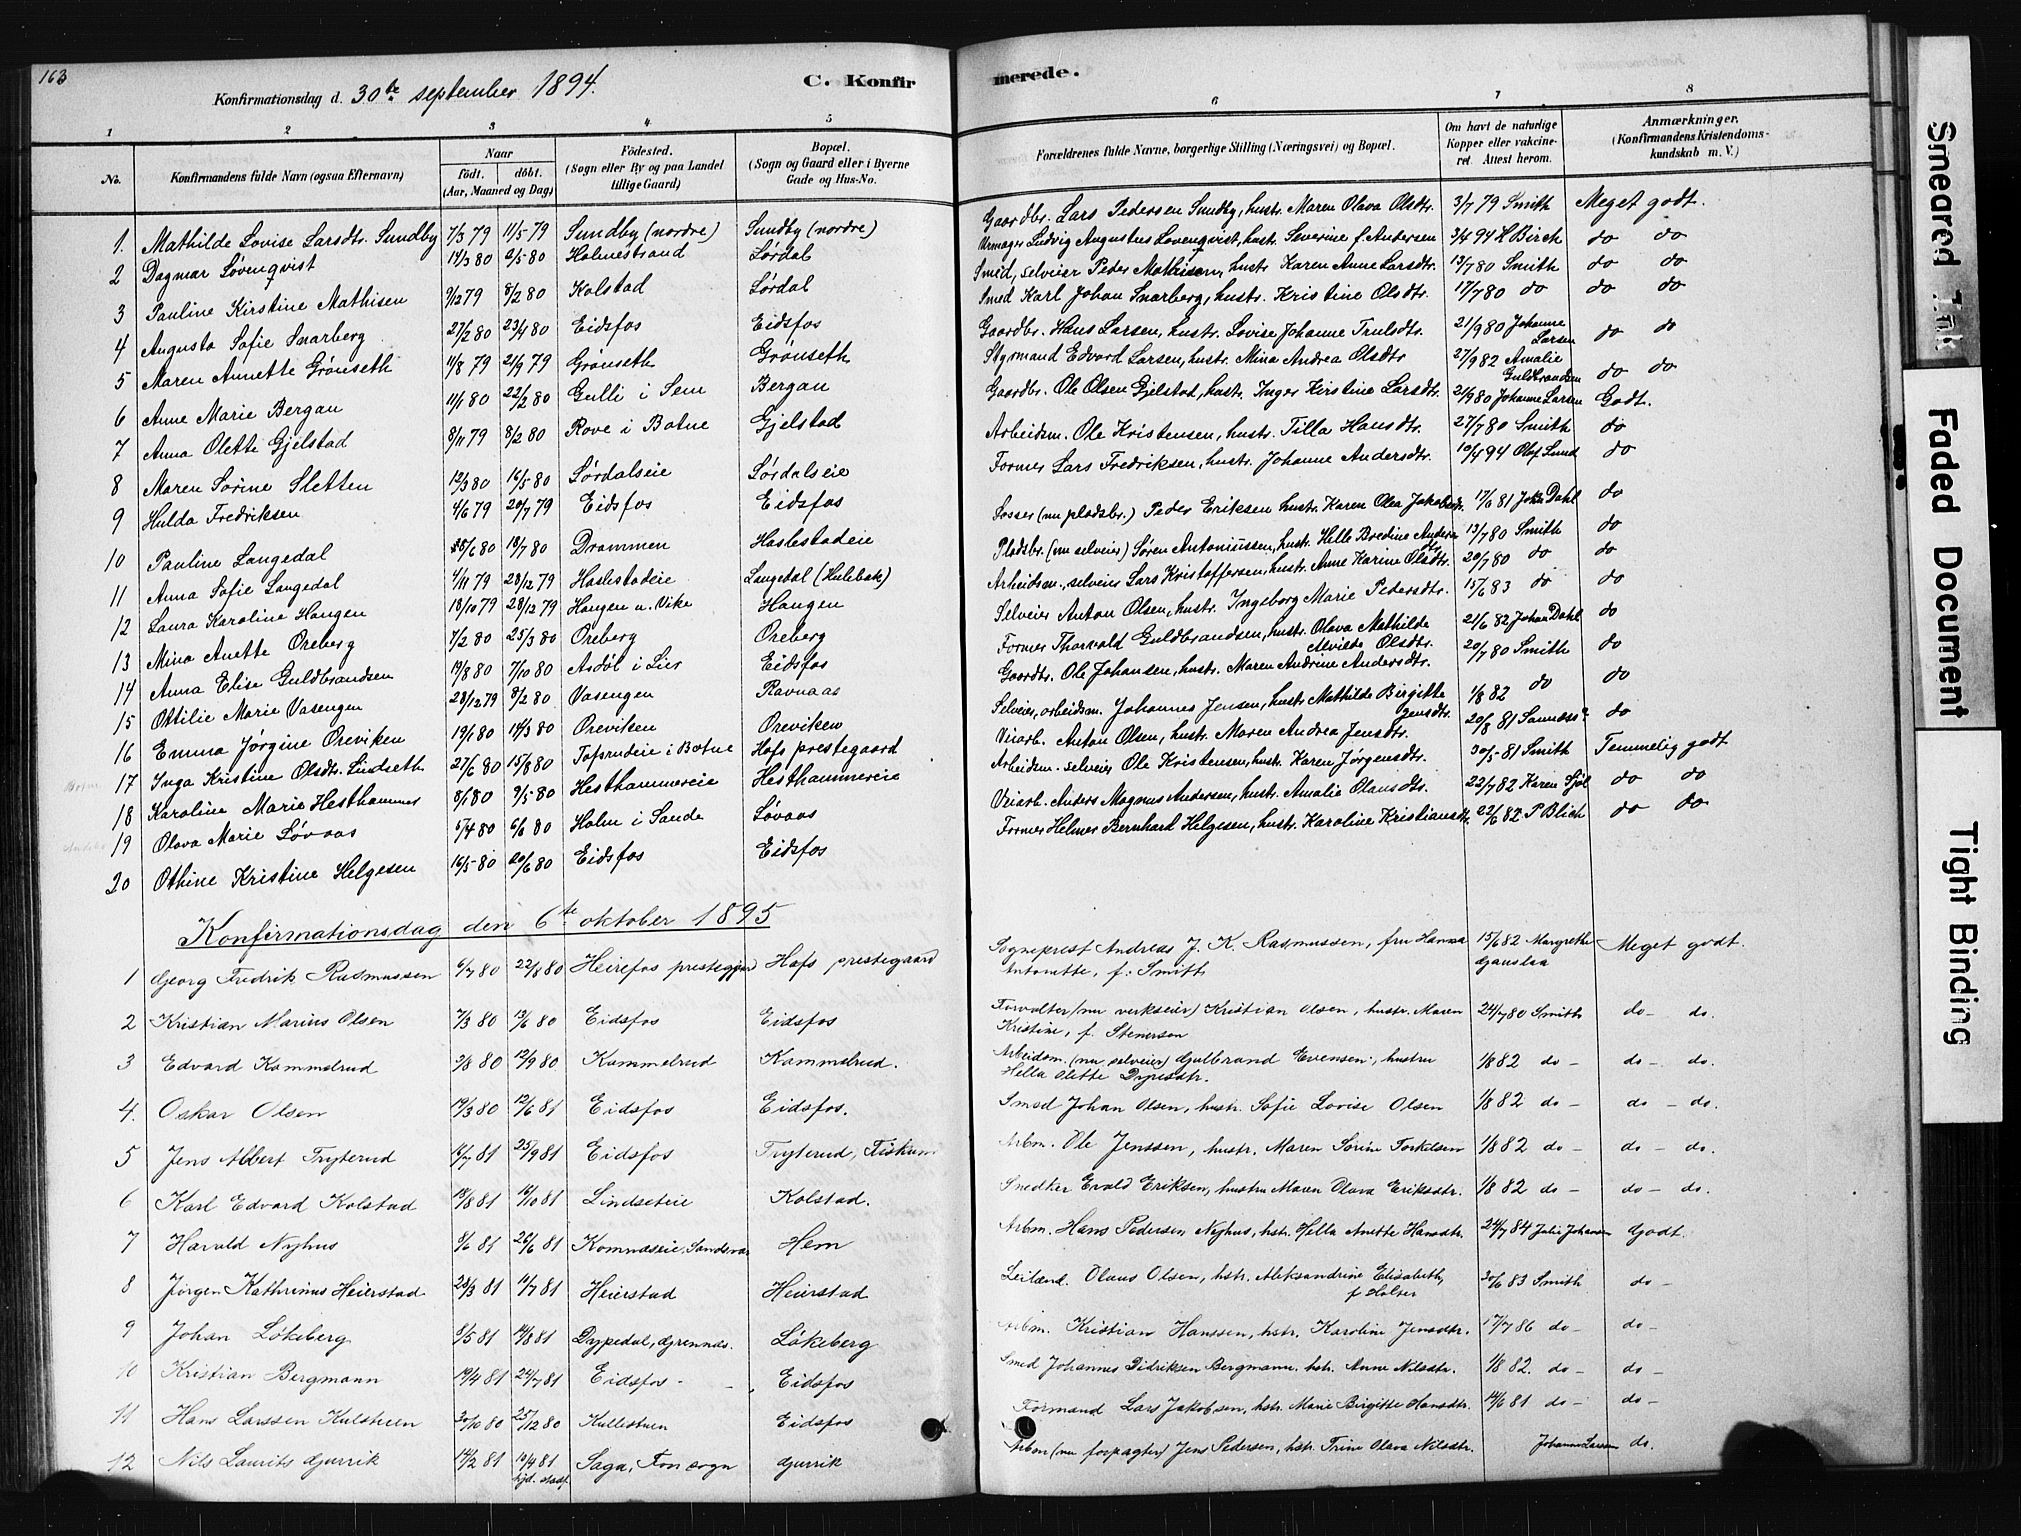 163
Konfirmationsdag d. 30te september 1894.
C. Konfir
merede.
1 2 3 4 5 6 7 8
No.
Konfirmandens fulde Navn (ogsaa Efternavn)
Naar
født. døbt.
(Aar, Maaned og Dag)
Födested.
(Sogn eller By og paa Landet
tillige Gaard)
Bopæl.
(Sogn og Gaard eller i Byerne
Gade og Hus-No.
Forældrenes fulde Navne, borgerlige Stilling (Næringsvei) og Bopæl.
Om havt de naturlige
Kopper eller vakcine-
ret. Attest herom.
Anmærkninger.
(Konfirmandens Kristendoms-
kundskab m. V.)
1. Mathilde Lovise Larsdtr. Sundby 7/3 79 11/5 79 Sundby (nordre) Sundby (nordre) Gaardbr. Lars Pedersen Sundby, hustr. Maren Olava Olsdtr. 3/7 79 Smith Meget godt.
2 Dagmar Løvenqvist 14/3 80 2/5 80 Holmestrand Lørdal Urmager Ludvig Augustus Lovenqvist, hustr. Severine f. Andersen 3/4 94 H Birch do do
3 Pauline Kirstine Mathisen 9/12 79 8/2 80 Kolstad Lørdal Smed, selveier Peder Mathisen, hustr. Karen Anne Larsdtr. 13/7 80 Smith do do
4 Augusta Sofie Snarberg 27/2 80 23/4 80 Eidsfos Eidsfos Smed Karl Johan Snarberg, hustr. Kristine Olsdtr. 17/7 80 do do do
5 Maren Annette Grønseth 11/8 79 21/9 79 Grønseth Grønseth Gaardbr. Hans Larsen, hustr. Lovise Johanne Trulsdtr. 21/9 80 Johanne Larsen do do
6 Anne Marie Bergan 11/1 80 22/2 80 Gulli i Sem Bergan Styrmand Edvard Larsen, hustr. Mina Andrea Olsdtr 27/9 82 Amalie Guldbrandsen do do
7 Anna Olette Gjelstad 8/11 79 8/2 80 Rove i Botne Gjelstad Gaardbr. Ole Olsen Gjelstad, hustr. Inger Kirstine Larsdtr. 21/9 80 Johanne Larsen Godt.
8 Maren Sørine Sletten 12/3 80 16/5 80 Sørdalseie Sørdalseie Arbeidsm. Ole Kristensen, hustr. Tilla Hansdtr. 27/7 80 Smith do
9 Hulda Fredriksen 4/6 79 20/7 79 Eidsfos Eidsfos Former Lars Fredriksen, hustr. Johanne Andersdtr. 10/4 94 Olof Lund do
10 Pauline Langedal 6/80 18/7 80 Drammen Haslestadeie Losser (nu pladsbr.) Peder Eriksen hustr. Karen Olea Jakobsdtr. 17/6 81 Joh. Dahl do
11 Anna Sofie Langedal 1/11 79 28/12 79 Haslestadeie Langedal (Hulebak) Pladsbr. (nu selveier) Søren Antoniussen, hustr. Helle Bredine Andersdtr. 13/7 80 Smith do
12 Laura Karoline Haugen 18/10 79 28/12 79 Haugen u. Vike Haugen Arbeidsm., selveier Lars Kristoffersen, hustr. Anne Karine Olsdtr. 20/7 80 do do
13 Mina Anette Oreberg 7/2 80 25/3 80 Oreberg Oreberg Selveier Anton Olsen, hustr. Ingeborg Marie Pedersdtr. 15/6 83 do do
14 Anna Elise Guldbrandsen 19/8 80 7/10 80 Asdøl i Lier Eidsfos Former Thorvald Guldbrandsen, hustr. Olava Mathilde Alvilde Olsdtr. 21/6 82 Johan Dahl do
15 Ottilie Marie Vasengen 28/12 79 8/2 80 Vasengen Ravnaas Gaardbr. Ole Johansen, hustr. Maren Andrine Andersdtr. 20/7 80 Smith do
16 Emma Jørgine Oreviken 19/1 80 14/3 80 Oreviken Oreviken Selveier, arbeidsm. Johannes Jensen, hustr. Mathilde Birgitte Jensdtr. 1/8 82 do do
17 Inga Kristine Olsdtr. Lindseth 27/6 80 15/8 80 Toferudeie i Botne Hofs prestegaard Veiarb. Anton Olsen, hustr. Maren Andrea Jensdtr. 20/8 81 do
18 Karoline Marie Hesthammer 8/1 80 9/5 80 Hesthammereie Hesthammereie Arbeidsm. selveier Ole Kristensen, hustr. Karen Jørgensdtr. 30/5 81 Smith Temmelig godt
19 Olava Marie Løvaas 5/4 80 6/6 80 Holm i Sande Løvaas Veiarb. Anders Magnus Andersen, hustr. Amalie Olausdtr. 22/7 82 Karen Sjøl do do
20 Othine Kristine Helgesen 16/5 80 20/6 80 Eidsfos Eidsfos Former Helmer Bernhard Helgesen, hustr. Karoline Kristiansdtr. 22/6 82 P Blich do do
Konfirmationsdag den 6te oktober 1895
1 Georg Fredrik Rasmussen 6/7 80 22/8 80 Heirefos prestegjæld Hofs prestegaard Sogneprest Andreas J. K. Rasmussen, fru Hanna Antonette, f. Smith 15/6 82 Margrethe Meget godt.
2 Kristian Marius Olsen 7/3 80 13/6 80 Eidsfos Eidsfos Forvalter (nu verkseier) Kristian Olsen, hustr. Maren Kristine, f. Stenersen 24/7 80 Smith do- do.
3 Edvard Kommelrud 2/8 80 12/9 80 Kommelrud Kommelrud. Arbeidsm. (nu selveier) Gulbrand Evensen, hustru Hella Olette Dyresdtr. 1/8 82 do- do-. do.
4. Oskar Olsen 19/3 80 12/6 81 Eidsfos Eidsfos. Smed Johan Olsen, hustr. Sofie Lovise Olsen 1/8 82 do- do - do.
5 Jens Albert Tryterud 16/7 81 25/9 81 Eidsfos Tryterud, Fiskum Arbm. Ole Jenssen, hustr. Maren Sørine Torkelsen 1/8 82 do- do- do.
6 Karl Edvard Kolstad 18/8 81 16/10 81 Lindseteie Kolstad. Snedker Evald Eriksen, hustru Maren Olava Eriksdtr. 1/8 82 do- do- do.
7 Harald Nyhus 8/6 81 26/6 81 Komnæseie, Sandesv. Hem Arbm. Hans Pedersen Nyhus, hstr. Hella Anette Hansdtr. 24/7 84 Julie Johansen Godt.
8 Jørgen Kathrinus Heierstad 28/3 81 10/7 81 Heierstad Heierstad Leilænd. Olaus Olsen, hstr. Aleksandrine Elisabeth, f Holter 30/6 83 Smith do-
9 Johan Løkeberg 8/5 81 14/8 81 Dypedal, Grennæs. Løkeberg Arbm. Kristian Hanssen, hstr. Karoline Jensdtr. 17/7 86 do- do-
10 Kristian Bergmann 19/4 81 24/7 81 Eidsfos - Eidsfos Smed Johannes Didriksen Bergmann, hstr. Anne Nilsdtr. 1/8 82. do- do-
11 Hans Larssen Kulstuen 30/10 80 25/12 80 Kullestuen Eidsfos Formand Lars Jakobsen, hstr. Marie Birgitte Hansdtr. 14/6 81 do- do-
12 Nils Laurits Gjurrik 14/2 81 10/4 81 hjd. stadf. Saga, Fon sogn Gjurrik Arbm (nu forpagter) Jens Pedersen, hstr. Trine Olava Nilsdtr. Johanne Larsen do.
Smeared Ink
Faded Document
Tight Binding